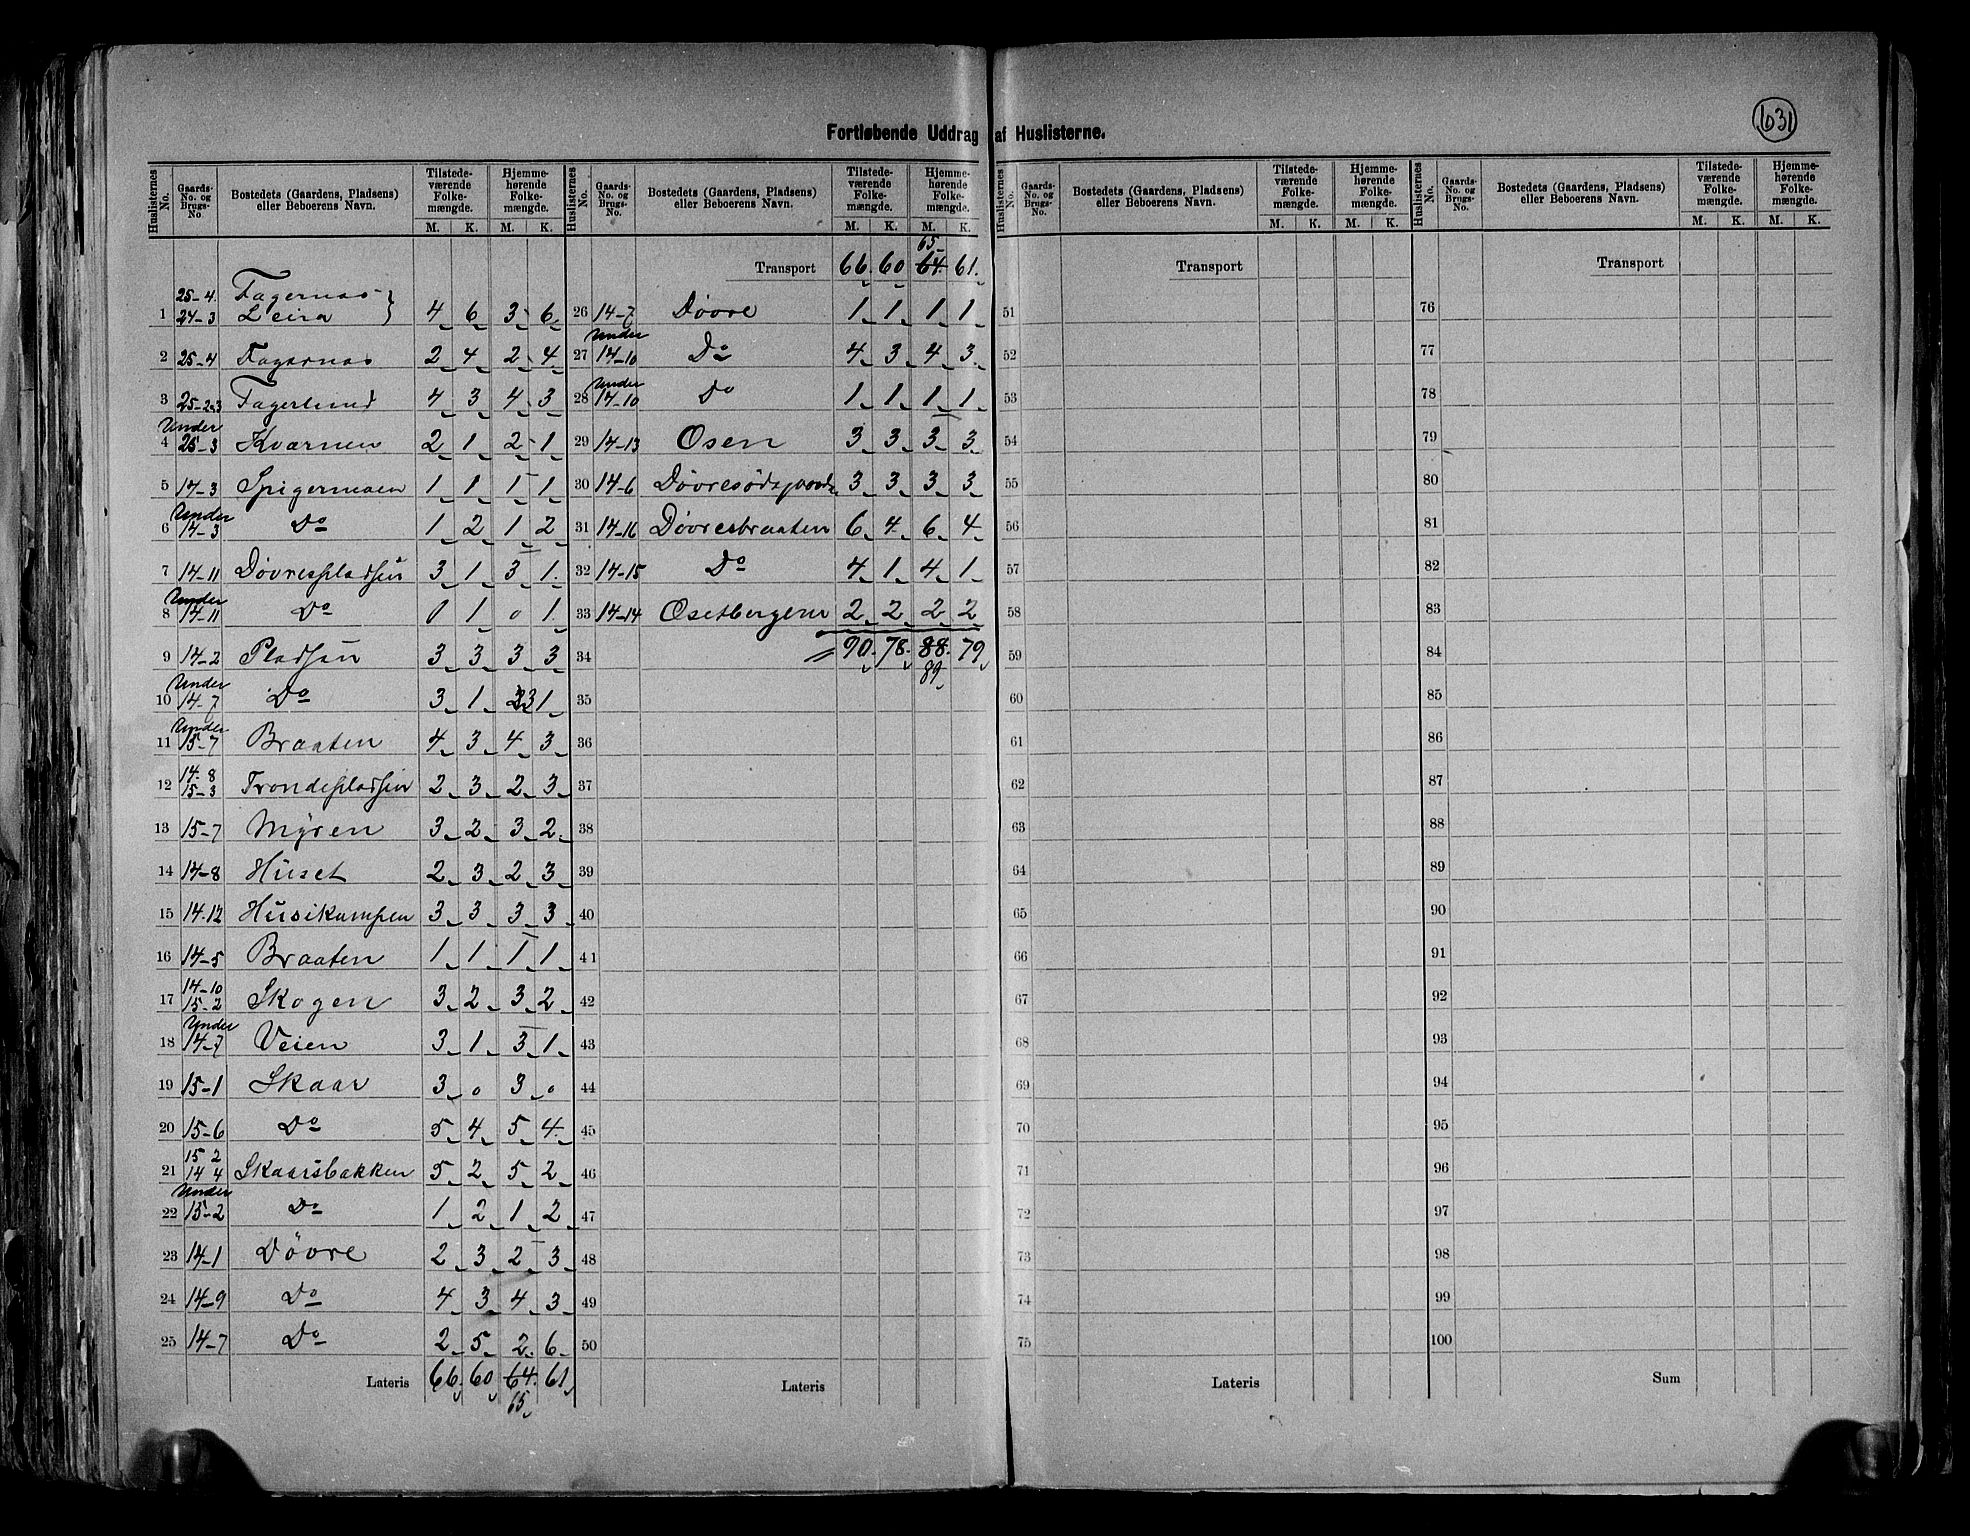 1031
Fortløbende Uddrag af Huslisterne.
Huslisternes No. | Gaards-No. og Brugs-No. | Bostedets (Gaardens, Pladsens) eller Beboerens Navn. | Tilstedeværende Folkemængde. M. K. | Hjemmehørende Folkemængde. M. K.
1 25-4. 24-3 Fagernæs Leira } 4 6 3 6
2 25-4 Fagernæs 2 4 2 4
3 25-2,3 Fagerlund 4 3 4 3
4 Under 25-3 Kværnen 2 1 2 1
5 14-3 Spigermoen 1 1 1 1
6 Under 14-3 Do 1 2 1 2
7 14-11 Døvrespladsen 3 1 3 1
8 Under 14-11 Do 0 1 0 1
9 14-2 Pladsen 3 3 3 3
10 Under 14-7 Do 3 1 3 1
11 Under 15-7 Braaten 4 3 4 3
12 14-8 15-3 Trondespladsen 2 3 2 3
13 15-7 Myren 3 2 3 2
14 14-8 Huset 2 3 2 3
15 14-12 Husikampen 3 3 3 3
16 14-5 Braaten 1 1 1 1
17 14-10 15-2 Skogen 3 2 3 2
18 Under 14-7 Veien 3 1 3 1
19 15-1 Skaar 3 0 3 0
20 15-6 Do 5 4 5 4
21 15 2 14 4 Skaarsbakken 5 2 5 2
22 Under 15-2 Do 1 2 1 2
23 14-1 Døvre 2 3 2 3
24 14-9 Do 4 3 4 3
25 14-7 Do 2 5 2 6
Lateris 66 60 64 61
65
Huslisternes No. | Gaards-No. og Brugs-No. | Bostedets (Gaardens, Pladsens) eller Beboerens Navn. | Tilstedeværende Folkemængde. M. K. | Hjemmehørende Folkemængde. M. K.
65
Transport 66 60 64 61
26 14-7 Døvre 1 1 1 1
27 Under 14-10 Do 4 3 4 3
28 Under 14-10 Do 1 1 1 1
29 14-13 Osen 3 3 3 3
30 14-6 3 3 3 3
31 14-16 Døvresbraaten 6 4 6 4
32 14-15 Do 4 1 4 1
33 14-14 Osetbergem 2 2 2 2
34 90 78 88 79
89
35
36
37
38
39
40
41
42
43
44
45
46
47
48
49
50
Lateris
Huslisternes No. | Gaards-No. og Brugs-No. | Bostedets (Gaardens, Pladsens) eller Beboerens Navn. | Tilstedeværende Folkemængde. M. K. | Hjemmehørende Folkemængde. M. K.
Transport
51
52
53
54
55
56
57
58
59
60
61
62
63
64
65
66
67
68
69
70
71
72
73
74
75
Lateris
Huslisternes No. | Gaards-No. og Brugs-No. | Bostedets (Gaardens, Pladsens) eller Beboerens Navn. | Tilstedeværende Folkemængde. M. K. | Hjemmehørende Folkemængde. M. K.
Transport
76
77
78
79
80
81
82
83
84
85
86
87
88
89
90
91
92
93
94
95
96
97
98
99
100
Sum